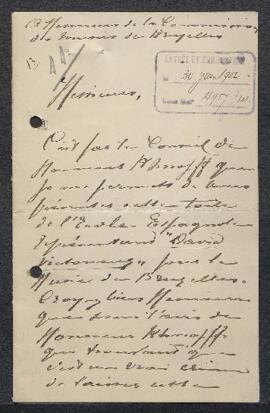 A Messieurs de la Commission
du Musée de Bruxelles
30 Jan 1902
Messieurs,
C'est par le Conseil de
Monsieur Khnopff que
je me permets de vous
présenter cette toile
de l'Ecole Espagnole
représentant "David
victorieux" pour le
Musée de Bruxelles.
Croyez bien Messieurs
que sous l'avis de
Monsieur Khnopff
qui trouvait que
c'est un vrai crime
de laisser cette